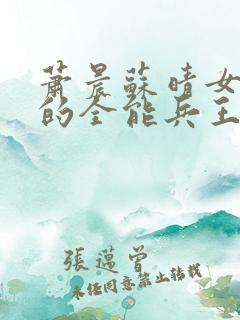 蕭晨蘇晴女
的全能兵王
張邁曾
未经同意禁止转载